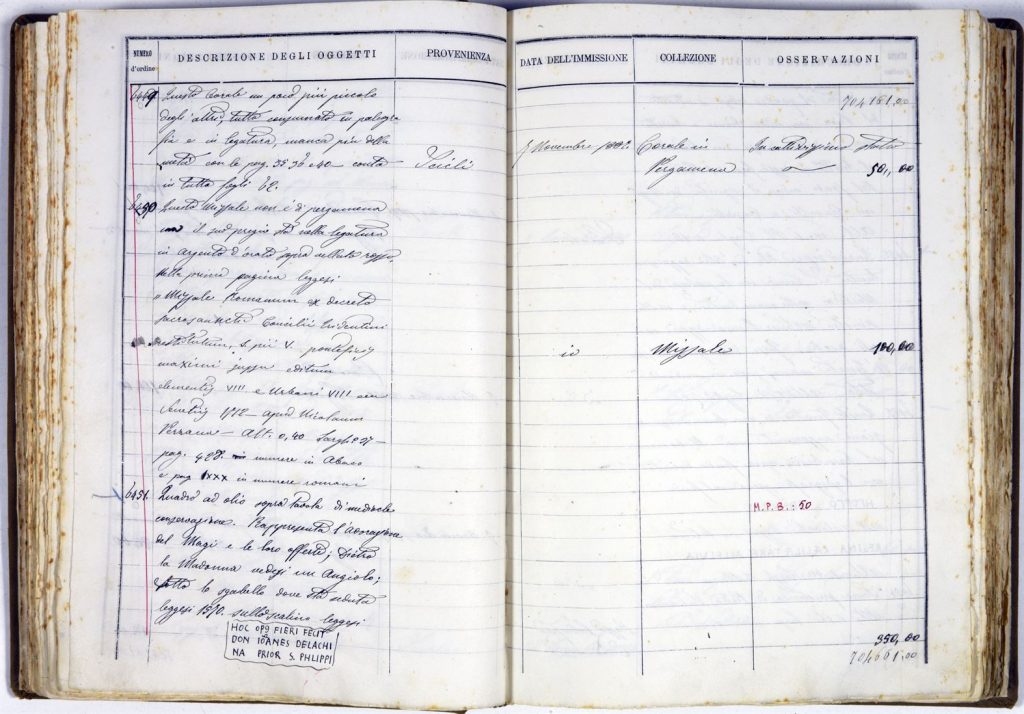 NUMERO d'ordine
DESCRIZIONE DEGLI OGGETTI
PROVENIENZA
DATA DELL'IMMISSIONE
COLLEZIONE
OSSERVAZIONI
704161.00
Questo Corale un poco più piccolo
degli altri, tutto consumato in paleogra
fia e in legatura, manca più della
metà con le pag. 35 36 e 40 conta
in tutto fogli
Scicli
Novembre
Corale in
Pergamena
In cattivissimo stato
50,, 00
6450
Questo Missale non è di pergamena
il suo pregio sta nella legatura
in argento dorato sopra velluto rosso.
Nella prima pagina leggesi
„ Missale Romanum ex decreto
sacrosancti Concilii Tridentini
restitutum, S. Pii V. pontificis
maximi jussu editum
Clementis VIII e Urbani VIII
Venetiis apud Nicolaum
Pezzana — Alt. 0,40 Largh. 27 —
pag. 428. in numero in Abaco
e pag. XXX in numero romani
id
Missale
100,00
6451.
Quadro ad olio sopra tavola di mediocre
conservazione. Rappresenta l'adorazione
dei Magi e le loro offerte; Dietro
la Madonna vedesi un Angiolo;
sotto lo sgabello dove sta seduta
leggesi 1570. sullo scalino leggesi
HOC OPꝰ FIERI FECIT
DON IOANES DELACHI
NA PRIOR S. PHLIPPI
M.P.B.: 50
350,00
704661.00